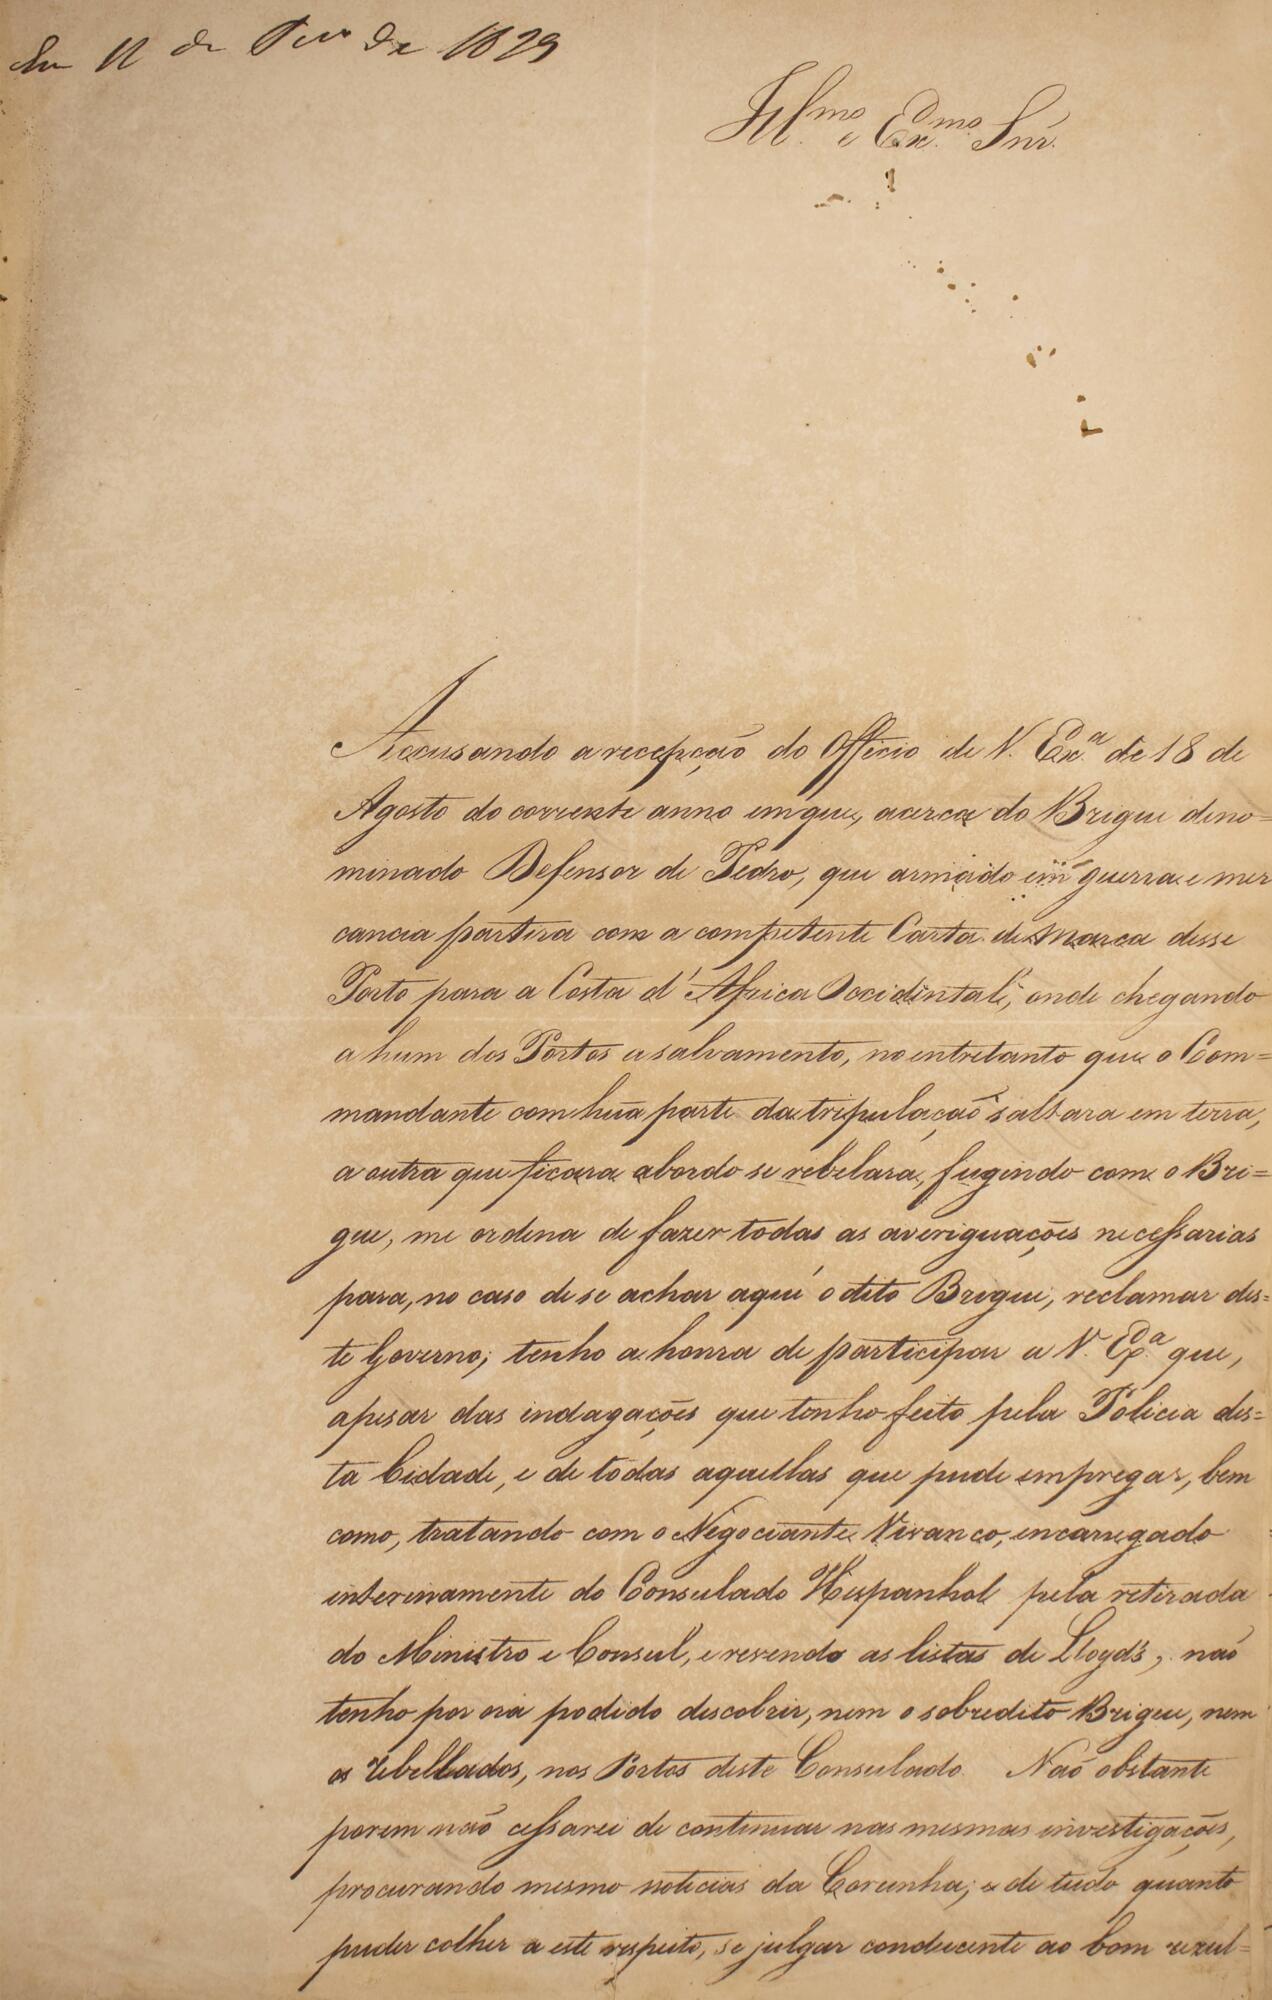 Em 11 de Fevro de 1829
Illmo e Exmo Snr.
Accusando a recepção do Officio de V. Exa. de 18 de
Agosto do corrente anno em que, acerca do Brigue deno=
minado Defensor de Pedro, que armado em guerra e mer
cancia partira com a competente Carta de Marca desse
Porto para a Costa d'Africa Occidintal, onde chegando
a hum dos Portos a salvamento, no entretanto que o Com=
mandante com hũa parte da tripulação saltara em terra,
a outra que ficara abordo se rebelara, fugindo com o Bri=
gue, me ordena de fazer todas as averiguações necessarias
para, no caso de se achar aqui o dito Brigue, reclamar des=
te Governo; tenho a honra de participar a V. Exa. que,
apesar das indagações que tenho feito pela Policia des=
ta Cidade, e de todas aquellas que pude empregar, bem
como, tratando com o Negociante Vivanco, encarregado
interinamente do Consulado Hespanhol pela retirada
do Ministro e Consul, e revendo as listas de Lloyd's, não
tenho por ora podido descobrir, nem o sobredito Brigue, nem
os rebellados, nos Portos deste Consulado. Não obstante
porem não cessarei de continuar nas mesmas investigações,
procurando mesmo noticias da Corunha; e de tudo quanto
puder colher a este respeito, se julgar conducente ao bom rezul=